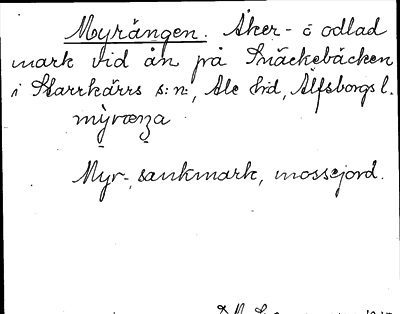 Myrängen. Åker- o odlad
mark vid ån på Snäckebäcken
i Starrkärrs s:n:, Ale hd, Älfsborgs l.
mỳrænza
Myr-, sankmark, mossejord.